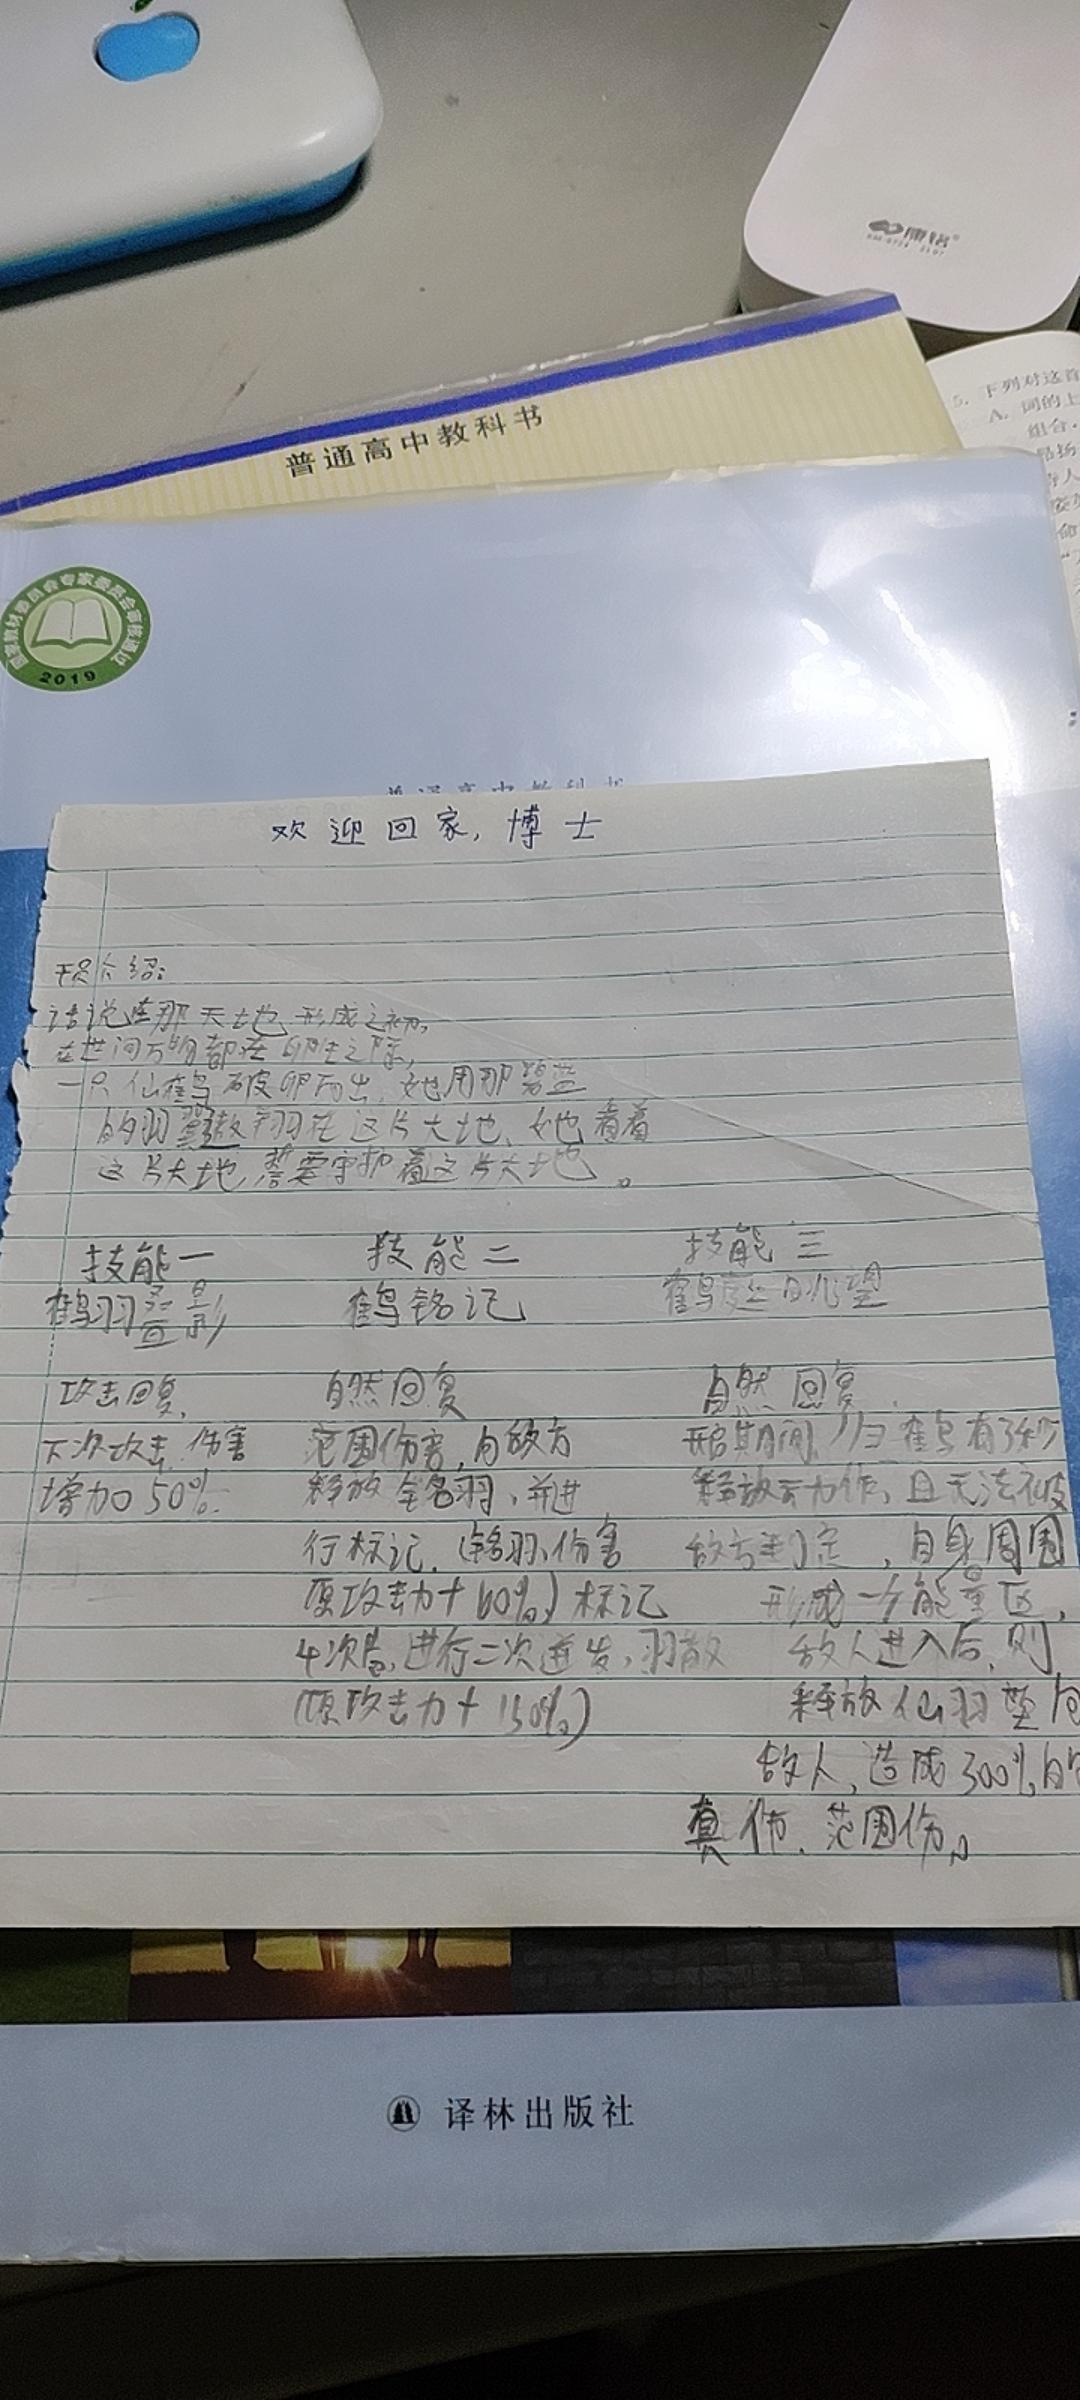 康铭
普通高中教科书
5. 下列对这首
A. 词的上
组合.
国家教材委员会专家委员会审核通过
2019
普通高中教科书
欢迎回家,博士
介绍:
话说在那天地形成之初,
在世间万物都在
一只仙鹤破卵而出,她用那
的羽翼翱翔在这片大地、她看着
这片大地,誓要守护着这片大地。
技能一 技能二 技能三
鹤羽叠影 鹤铭记 鹤 眺望
攻击回复, 自然回复 自然回复,
下次攻击,伤害 范围伤害,向敌方 期间,归鹤有3秒
增加50%. 释放铭羽,并进 释放动作,且无法被
行标记.(铭羽,伤害 敌方判定,自身周围
原攻击力+60%)标记 形成一个能量区,
4次后,进行二次迸发,羽散 敌人进入后,则
(原攻击力+150%) 释放仙羽 向
敌人,造成300%的
真伤.范围伤。
译林出版社